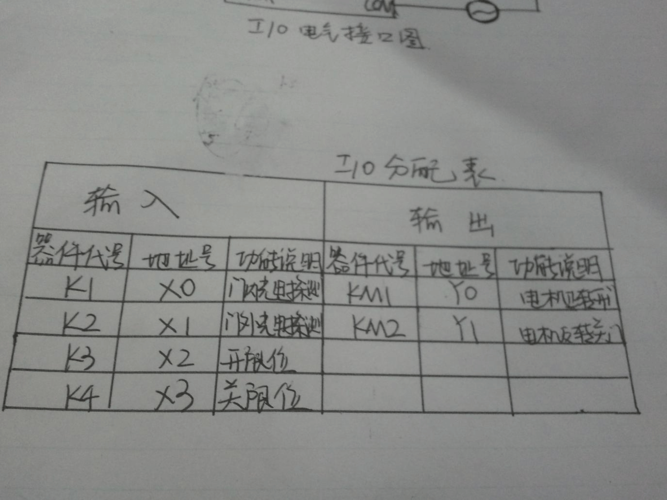 COM
I/O 电气接口图
I/O 分配表
输入 输出
器件代号 地址号 功能说明 器件代号 地址号 功能说明
K1 X0 门内光电探测 KM1 Y0 电机正转开门
K2 X1 门外光电探测 KM2 Y1 电机反转关门
K3 X2 开限位
K4 X3 关限位